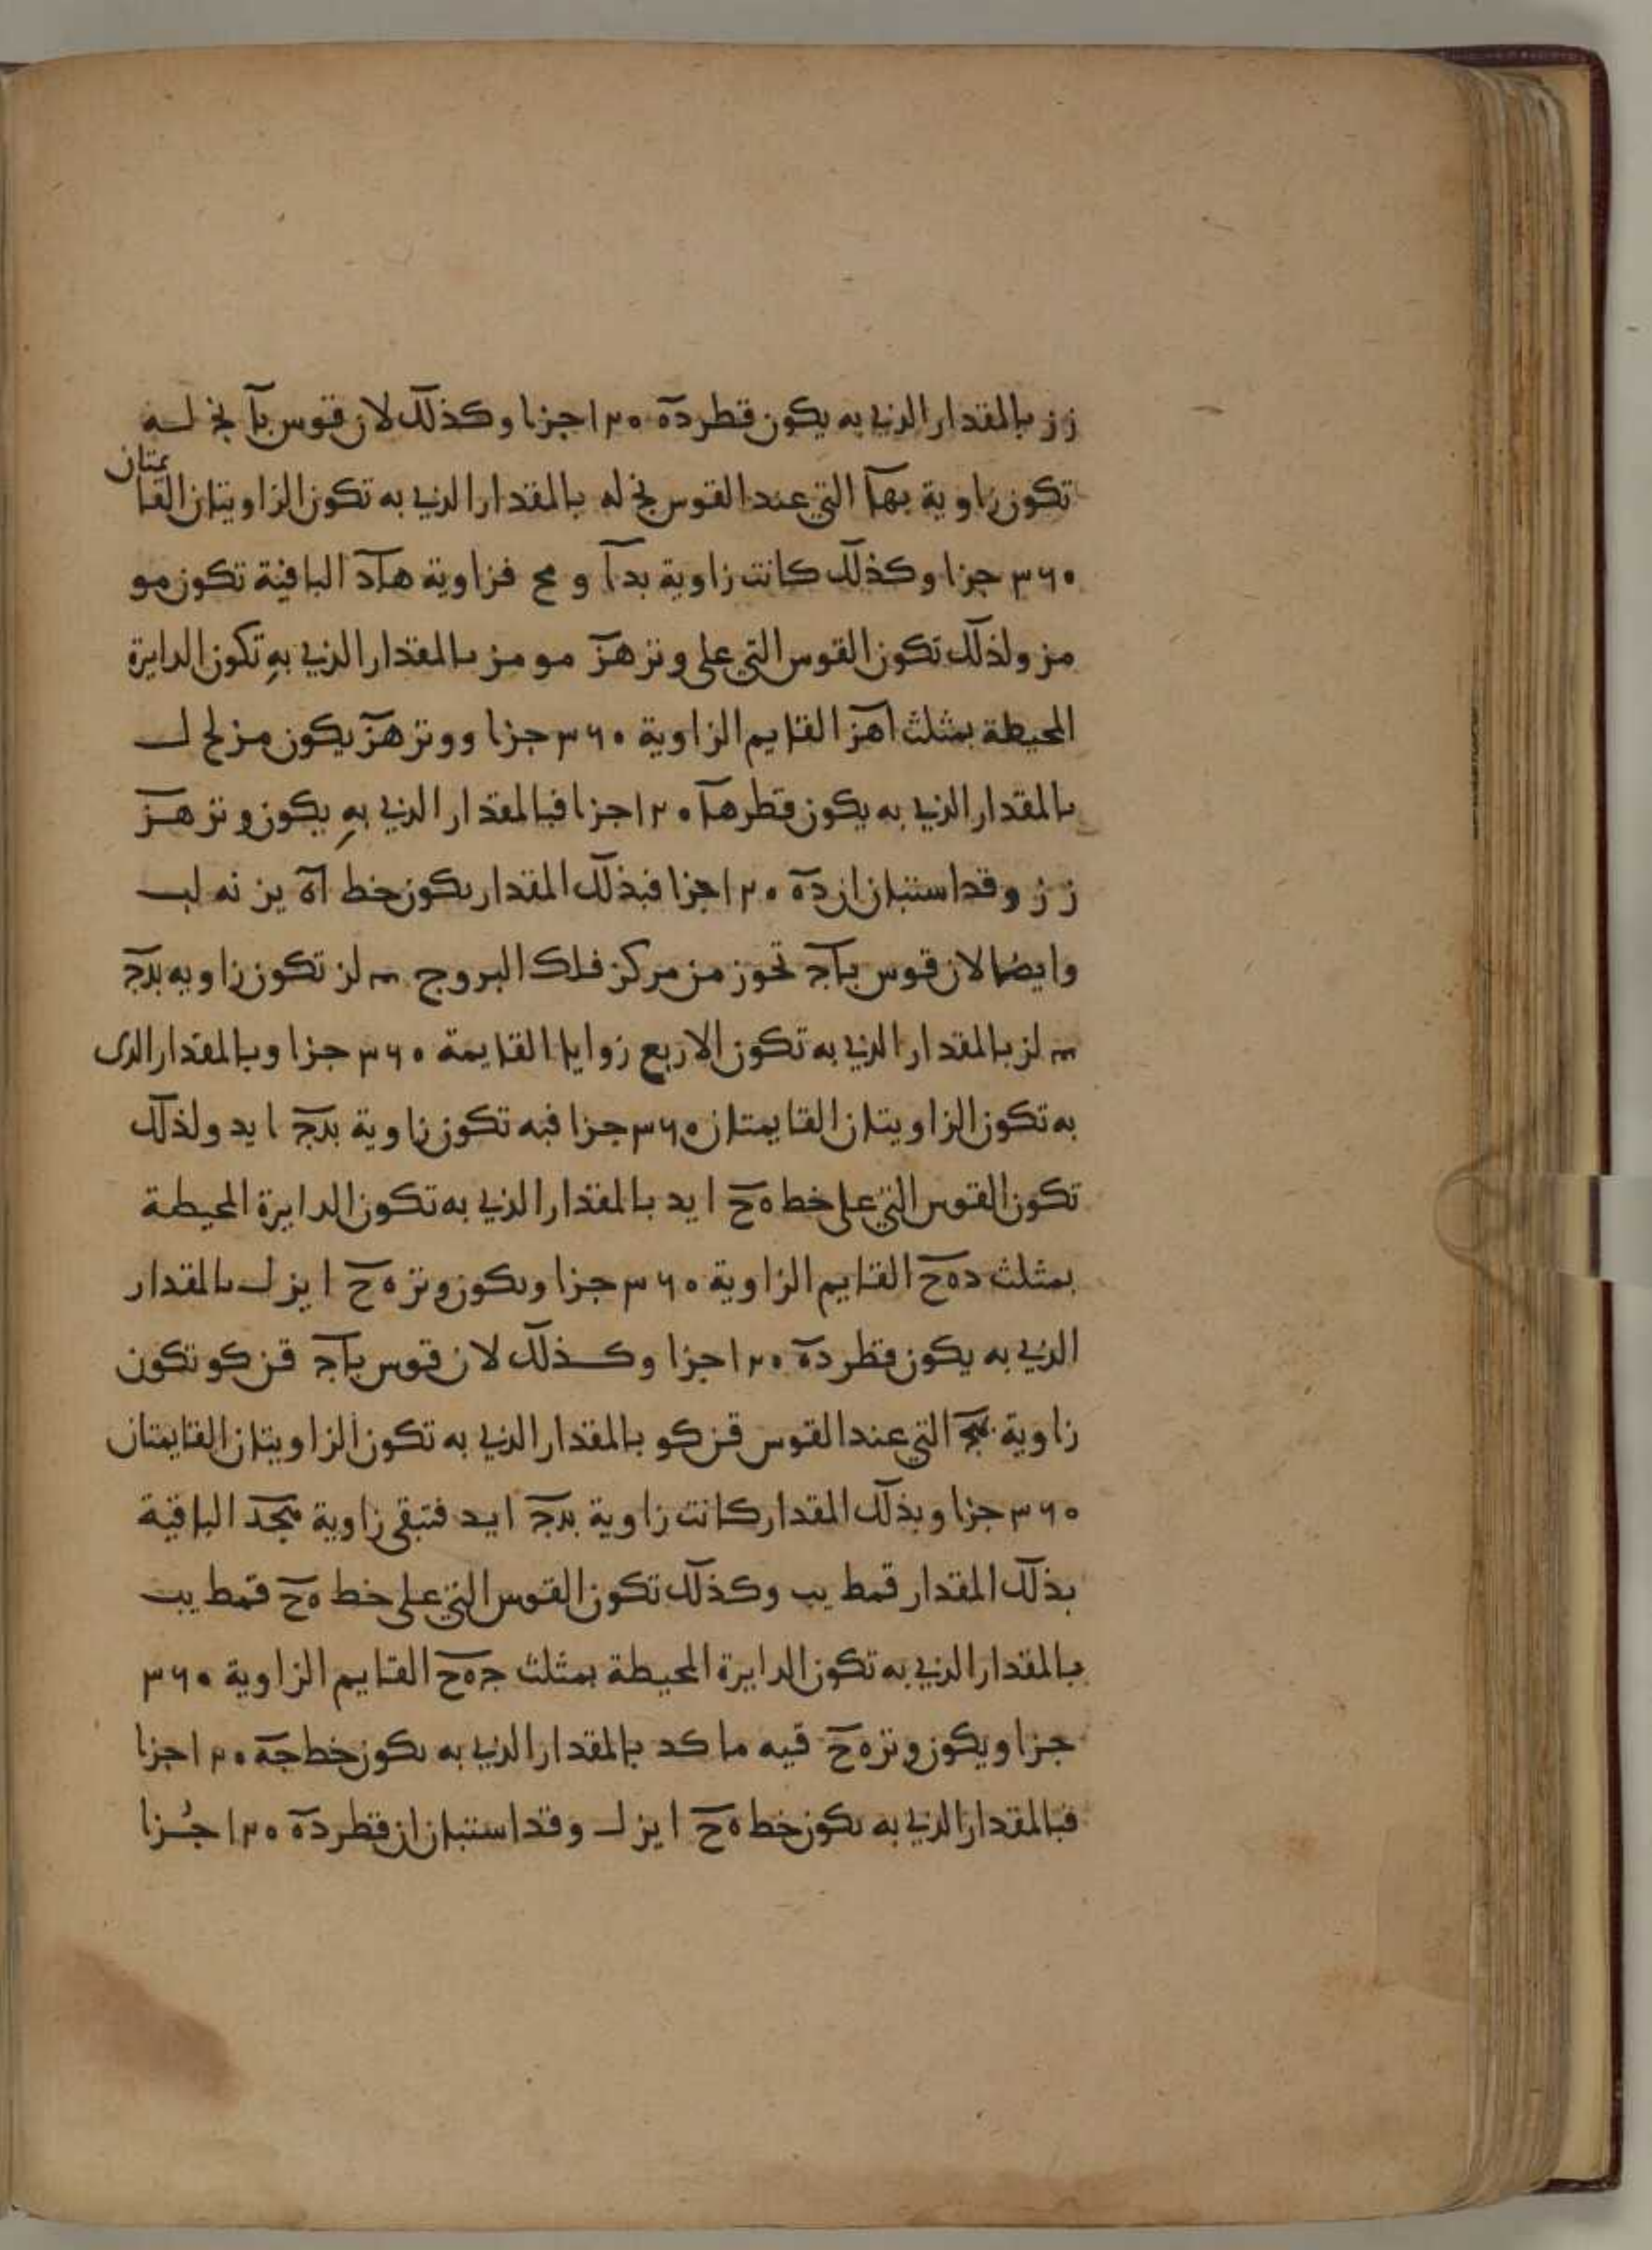 ز ز بالمقدار الذي به يكون قطر ده ١٢٠ جزا وكذلك لان قوس با نج له
تكون زاوية بها التي عند القوس نج له بالمقدار الذي به تكون الزاويتان القايمتان
٣٦٠ جزا وكذلك كانت زاوية بدا و مح فزاوية هاد الباقية تكون مو
مز ولذلك تكون القوس التي على وتر هز مو مز بالمقدار الذي به تكون الدايرة
المحيطة بمثلث اهز القايم الزاوية ٣٦٠ جزا ووتر هز يكون مز لح ل
بالمقدار الذي به يكون قطر ها ١٢٠ جزا فبالمقدار الذي به يكون وتر هز
ز ز وقد استبان ان ده ١٢٠ جزا فبذلك المقدار يكون خط اه يز نه لب
وايضا لان قوس باج تحوز من مركز فلك البروج لز تكون زاويه بدج
لز بالمقدار الذي به تكون الاربع زوايا القايمة ٣٦٠ جزا وبالمقدار الذى
به تكون الزاويتان القايمتان ٣٦٠ جزا فبه تكون زاوية بدج ا يد ولذلك
تكون القوس التي على خط هح ا يد بالمقدار الذي به تكون الدايرة المحيطة
بمثلث دهح القايم الزاوية ٣٦٠ جزا ويكون وتر هح ا يز ل بالمقدار
الذي به يكون قطر ده ١٢٠ جزا وكذلك لان قوس باج قنز كو تكون
زاوية بهج التي عند القوس قنز كو بالمقدار الذي به تكون الزاويتان القايمتان
٣٦٠ جزا وبذلك المقدار كانت زاوية بدج ا يد فتبقى زاوية هجد الباقية
بذلك المقدار قمط يب وكذلك تكون القوس التي على خط هح قمط يب
بالمقدار الذي به تكون الدايرة المحيطة بمثلث جهح القايم الزاوية ٣٦٠
جزا ويكون وتر هح قيه ما كد بالمقدار الذي به يكون خط جه ١٢٠ جزا
فبالمقدار الذي به يكون خط هح ا يز ل وقد استبان ان قطر ده ١٢٠ جُزا